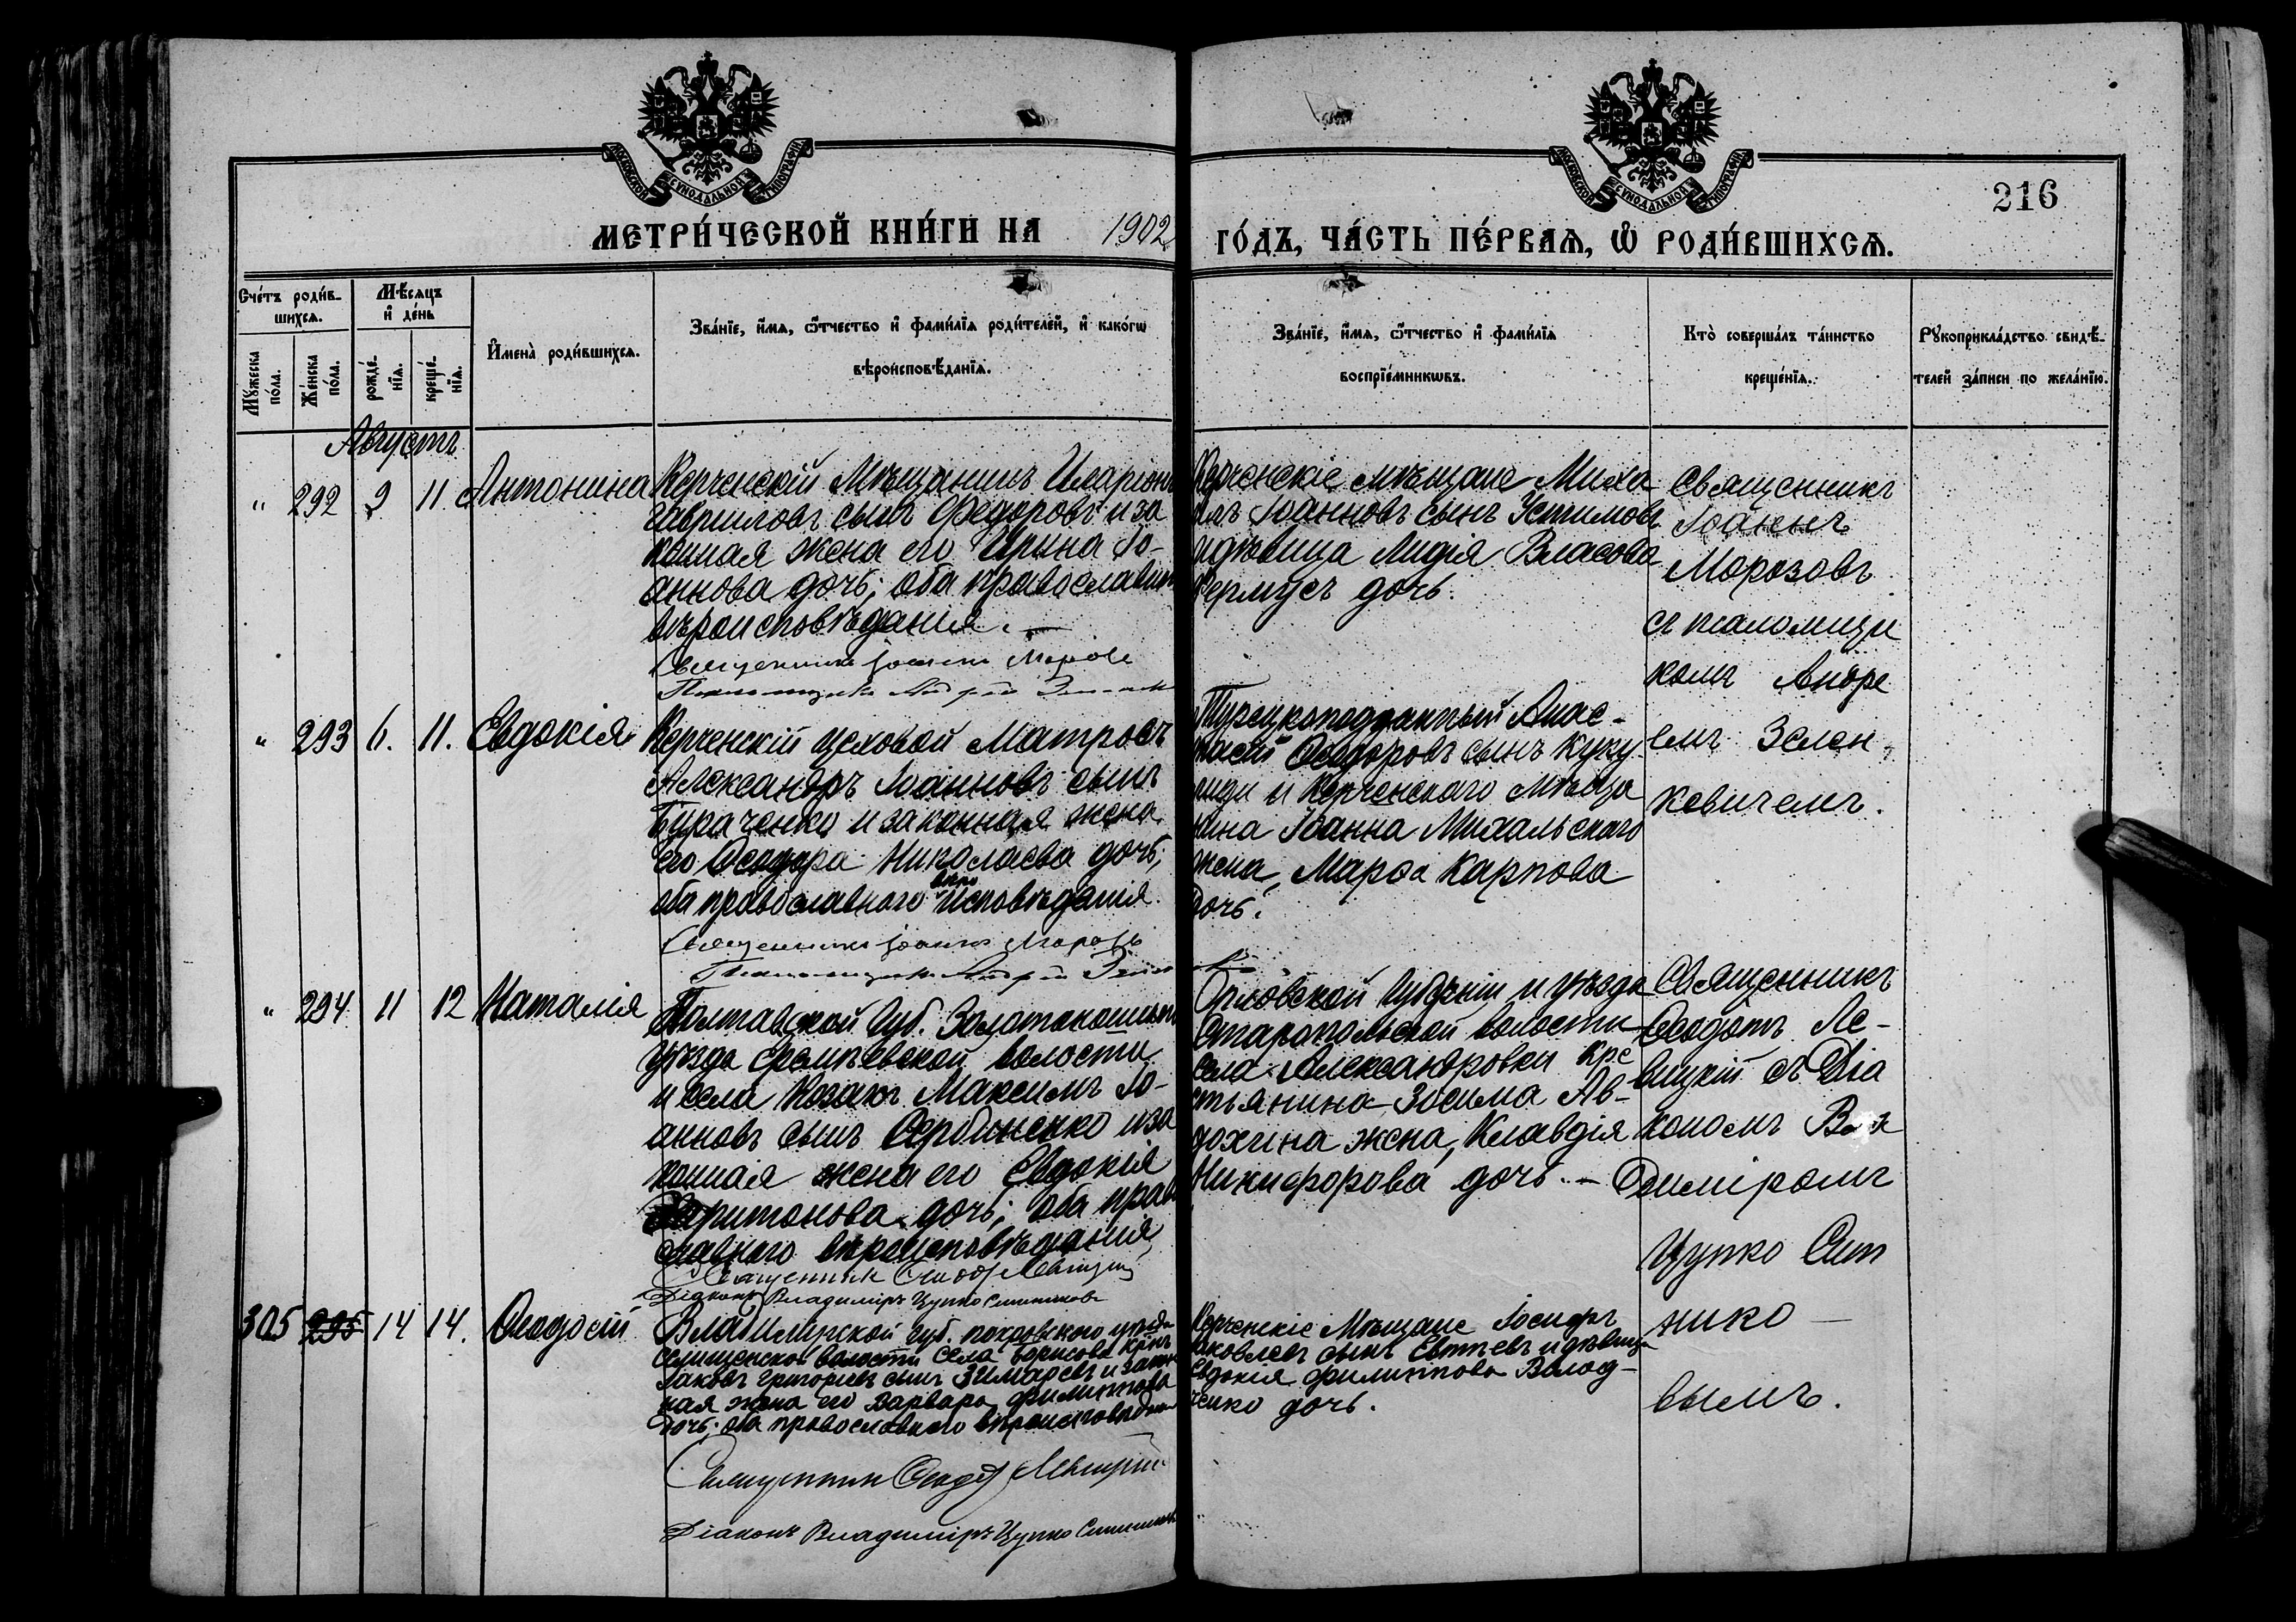 МОСКОВСКОЙ СУНОДАЛЬНОЙ ТИПОГРАФІИ
МОСКОВСКОЙ СУНОДАЛЬНОЙ ТИПОГРАФІИ
216
МЕТРИ́ЧЕСКОЙ КНИ́ГИ НА 1902 ГО́ДЪ, ЧА́СТЬ ПЕ́РВАѦ, Ѡ҆ РОДИ́ВШИХСѦ.
Сче́тъ роди́в-
шихсѧ.
Мꙋ́жеска по́ла.
Же́нска по́ла.
Мѣ́сѧцъ
и҆ де́нь
рожде́-
нїѧ.
креще́-
нїѧ.
И҆мена̀ роди́вшихсѧ.
Зва́нїе, и҆́мѧ, ѻ҆́тчество и҆ фами́лїѧ роди́телей, и҆ како́гѡ
вѣроисповѣ́данїѧ.
Зва́нїе, и҆́мѧ, ѻ҆́тчество и҆ фами́лїѧ
воспрїе́мникѡвъ.
Кто̀ соверша́лъ та́инство
креще́нїѧ.
Рꙋкоприкла́дство свидѣ́-
телей за́писи по жела́нїю.
Августъ
" 292 9 11 Антонина
Керченскій Мѣщанинъ Иларіонъ
Гавриловъ сынъ Федоровъ и за
конная жена его Ирина Іо-
аннова дочь; оба православн
вѣроисповѣданія. —
Священникъ Іоаннъ Морозо
Псаломщикъ Андрей
Керченскіе мѣщане Миха-
илъ Іоанновъ сынъ Устимовъ
и дѣвица Лидія Власова
дочь.
Священникъ
Іоаннъ
Морозовъ
съ псаломщи
комъ Андре
емъ Зелен
кевичемъ.
" 293 6. 11. Евдокія
Керченскій цеховой Матросъ
Александръ Іоанновъ сынъ
Бураченко и законная жена
его Ѳеодора Николаева дочь;
оба православнаго вѣро исповѣданія.
Священникъ Іоаннъ Морозъ
Псаломщикъ Андрей
Турецкоподданный Анас-
тасій Ѳеодоровъ сынъ Куку
лиди и Керченскаго Мѣща
нина Іоанна Михальскаго
жена, Марѳа Карпова
дочь.
" 294 11 12 Наталія
Полтавской Губ. Золотоношын
уѣзда волости
и села Козакъ Максимъ Іо-
анновъ сынъ Сербиненко и за
конная жена его Евдокія
Харитонова дочь; оба прав
славнаго вѣроисповѣданія,
Священникъ Ѳеодот Левицкій
Діаконъ Владиміръ Цупко Ситников
Орловской Губерніи и уѣзда
Старопольской волости
села Александровки Кре
стьянина Зосима Ав-
дохина жена, Клавдія
Никифорова дочь. —
Священникъ
Ѳеодотъ Ле-
вицкій съ Діа
кономъ Вла
димиромъ
Цупко Сит
нико —
вымъ.
305 295 14 14. Ѳеодосій
Владимірской губ. покровскаго уѣзда
Селищенской волости села Борисова Крнъ
Іаковъ Григорьевъ сынъ Зимаревъ и закон
ная жена его Варвара Филиппова
дочь; оба православнаго вѣроисповѣдан
Священник Ѳеодот Левицкій
Діаконъ Владиміръ Цупко Ситников
Керченскіе Мѣщане Іосифъ
Іаковлевъ сынъ Евтѣевъ и дѣвица
Евдокія Филиппова Волод-
ченко дочь.